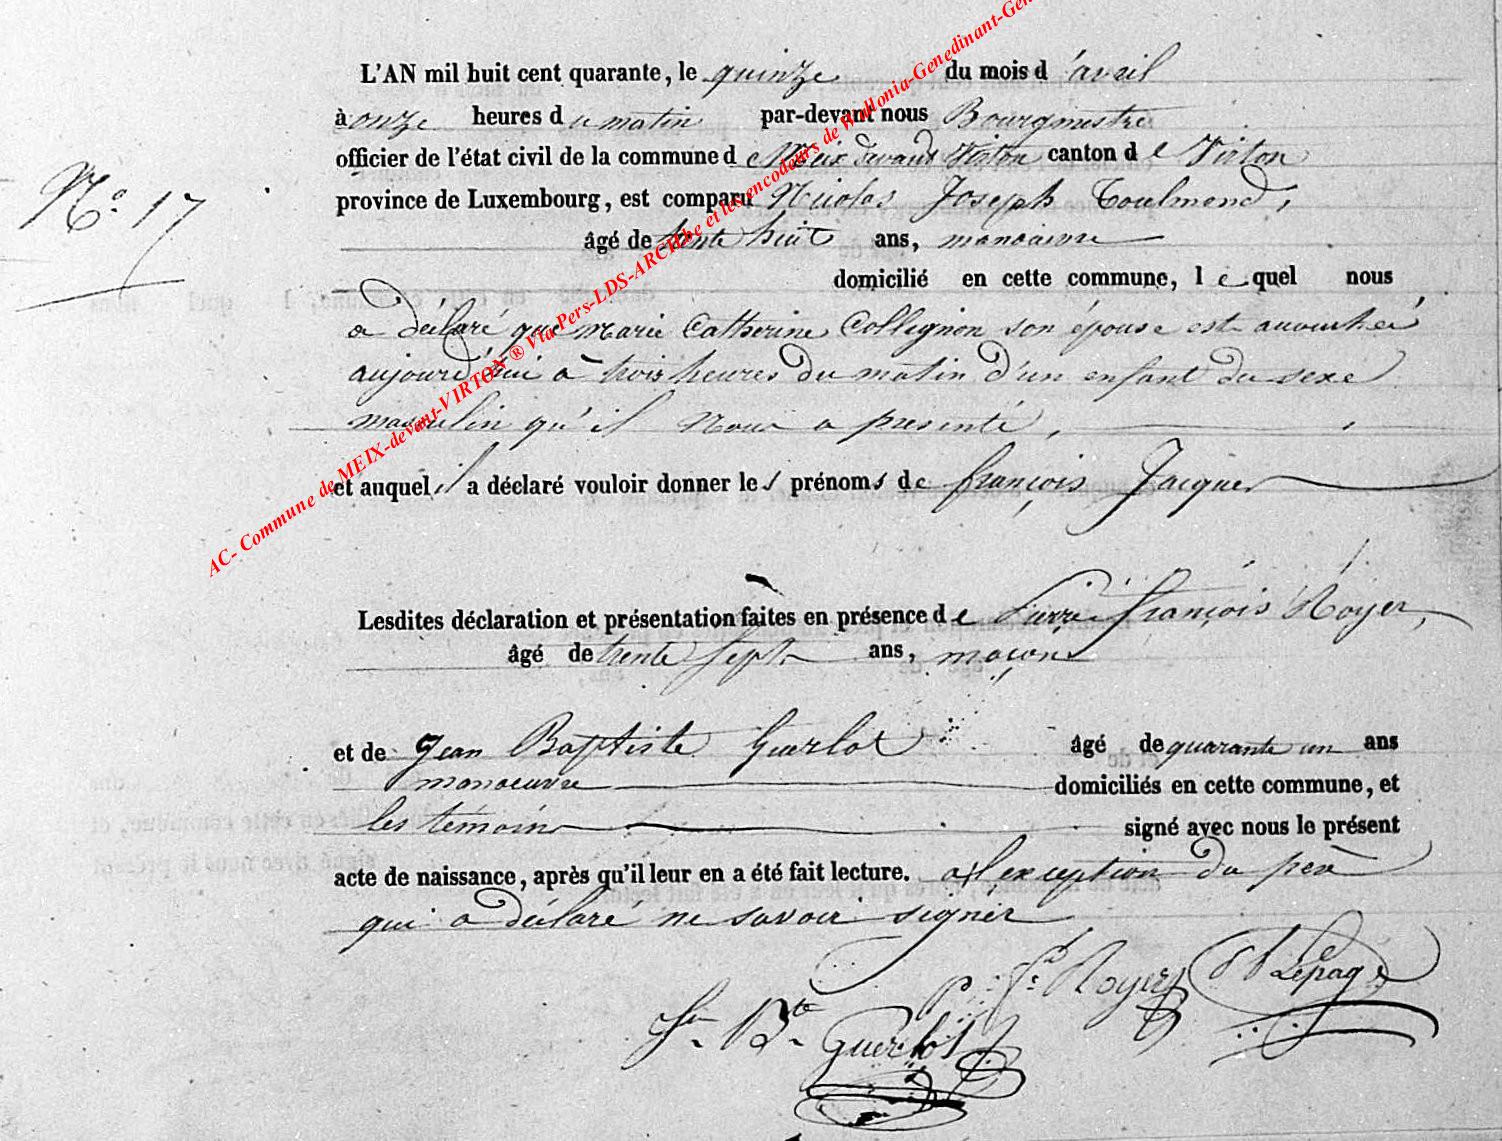 L'AN mil huit cent quarante, le quinze du mois d'avril
à onze heures du matin par-devant nous Bourgmestre
officier de l'état civil de la commune de Meix devant Virton canton de Virton
N.° 17
province de Luxembourg, est comparu Nicolas Joseph Toulmond,
âgé de trente huit ans, manoeuvre
domicilié en cette commune, lequel nous
a déclaré que Marie Catherine Collignon son épouse est accouchée
aujourd'hui à trois heures du matin d'un enfant du sexe
masculin qu'il nous a presenté,
et auquel il a déclaré vouloir donner les prénoms de françois Jacques
Lesdites déclaration et présentation faites en présence de Pierre françois Royer,
âgé de trente sept ans, maçon
et de Jean Baptiste Guerlot âgé de quarante un ans
manoeuvre domiciliés en cette commune, et
les témoins signé avec nous le présent
acte de naissance, après qu'il leur en a été fait lecture. a l'exception du père
qui a déclaré ne savoir signer
P. fs. Royer Lepage
Jn. Bte. Guerlot
AC- Commune de MEIX-devant-VIRTON ® Via Pers-LDS-ARCH.be et les encodeurs de Wallonia-Genedinant-Gen